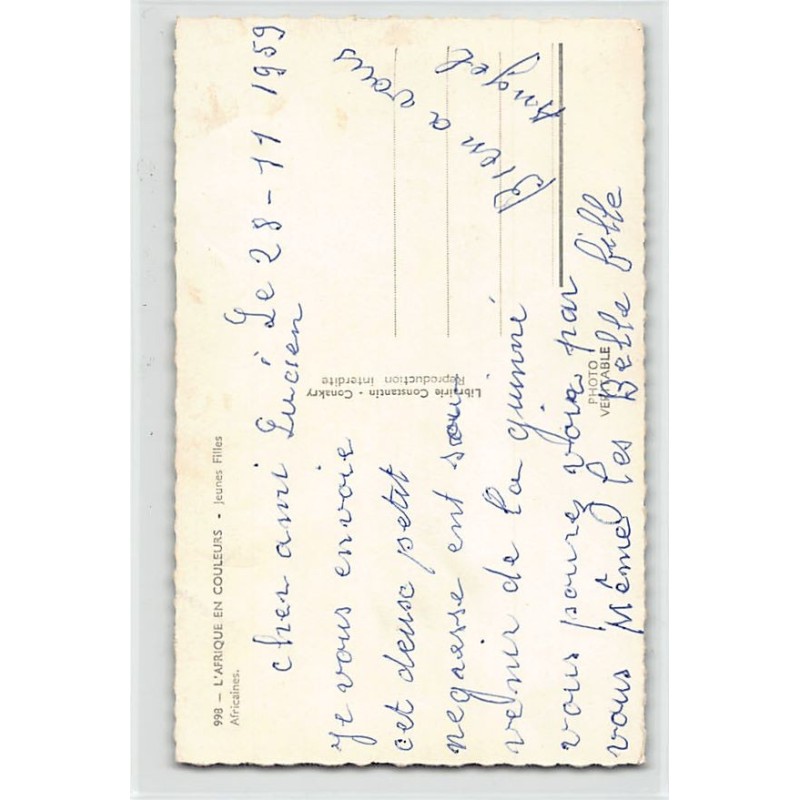 998 — L'AFRIQUE EN COULEURS • Jeunes Filles
Africaines.
Le 28-11 1959
cher ami Lucien
je vous envoie
cet deuse petit
negresse ent souv
venir de la guinné
vous pourez voir par
vous Même les Belle fille
Bien a vous
Angel
Librairie Constantin - Conakry
Reproduction interdite
PHOTO
VERITABLE